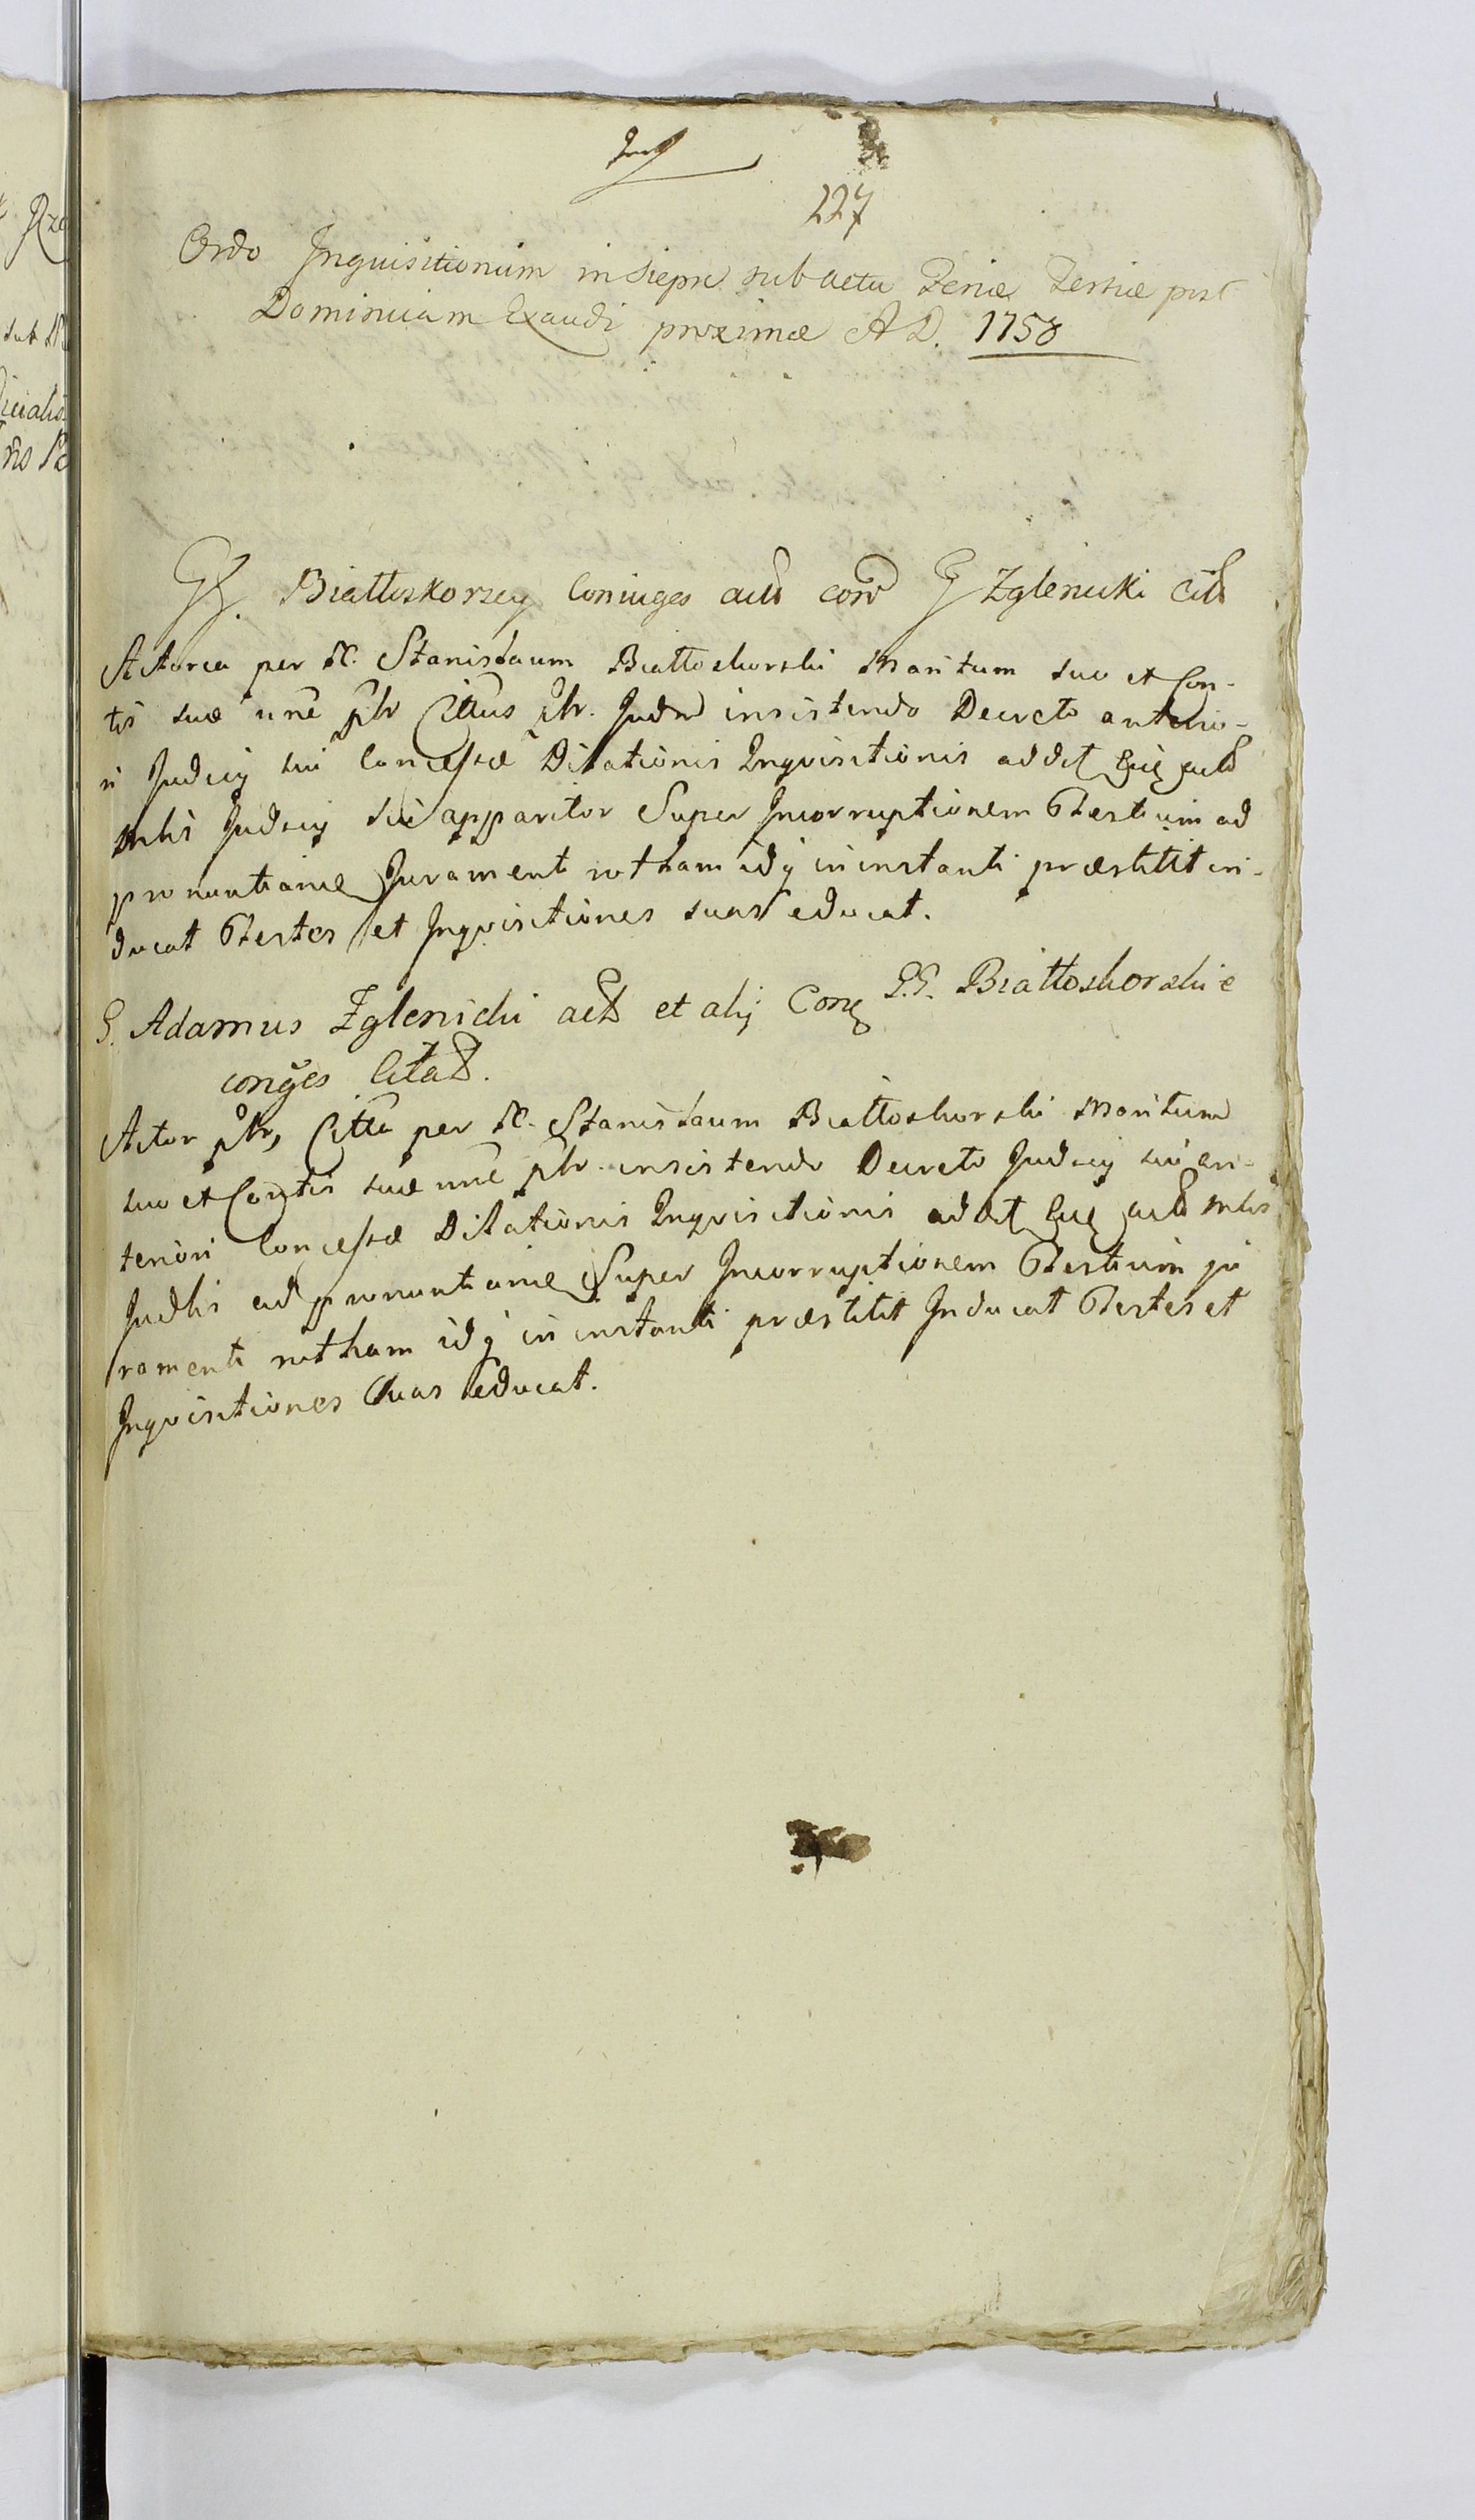 227
Ordo Inquisitionum in Siepr. sub actu Feriæ Tertiæ post
Dominicam Exaudi proximæ A D. 1758
GG. Białłoskorscy Coniuges act cora G Zglenicki Cit
Actorea per N. Stanisłaum Białłoskorski Maritum suo et Con-
tis suæ nne ptr Cittus ptr. Judm insistendo Decreto anterio-
ri Judicy sui Concessæ Dilationis Inqvisitionis addit
Judicy sui apparitor Super Incorruptionem Testium ad
pronuntianæ Jurament rotham idq in instanti præstitit in-
ducat Testes et Inqvisitiones suas educat.
G. Adamus Zglenicki act et alij Con G.G. Białłoskorskie
conges Citat.
Actor ptr, Citta per N. Stanisłaum Białłoskorski Maritum
suo et Contis suæ nne ptr. insistendo Decreto Judicy sui an-
teriori Concessæ Dilationis Inqvisitionis addit
Judlis ad pronuntianæ Super Incorruptionem Testium ju
ramenti rotham idq in instanti præstitit Inducat Testes et
Inqvisitiones Suas educat.